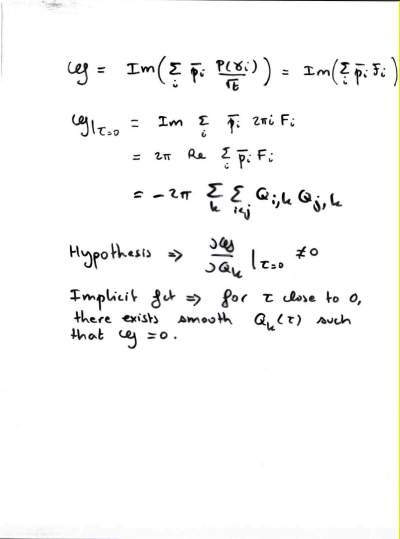 𝒢 = Im(Σ_i p̄_i P(γ_i)/√τ) = Im(Σ_i p̄_i ℱ_i)
𝒢|τ=0 = Im Σ_i p̄_i 2πi F_i
= 2π Re Σ_i p̄_i F_i
= -2π Σ_k Σ_i<j Q_i,k Q_j,k
Hypothesis ⇒ ∂𝒢/∂Q_k |τ=0 ≠0
Implicit fct ⇒ for τ close to 0,
there exists smooth Q_k(τ) such
that 𝒢 =0.